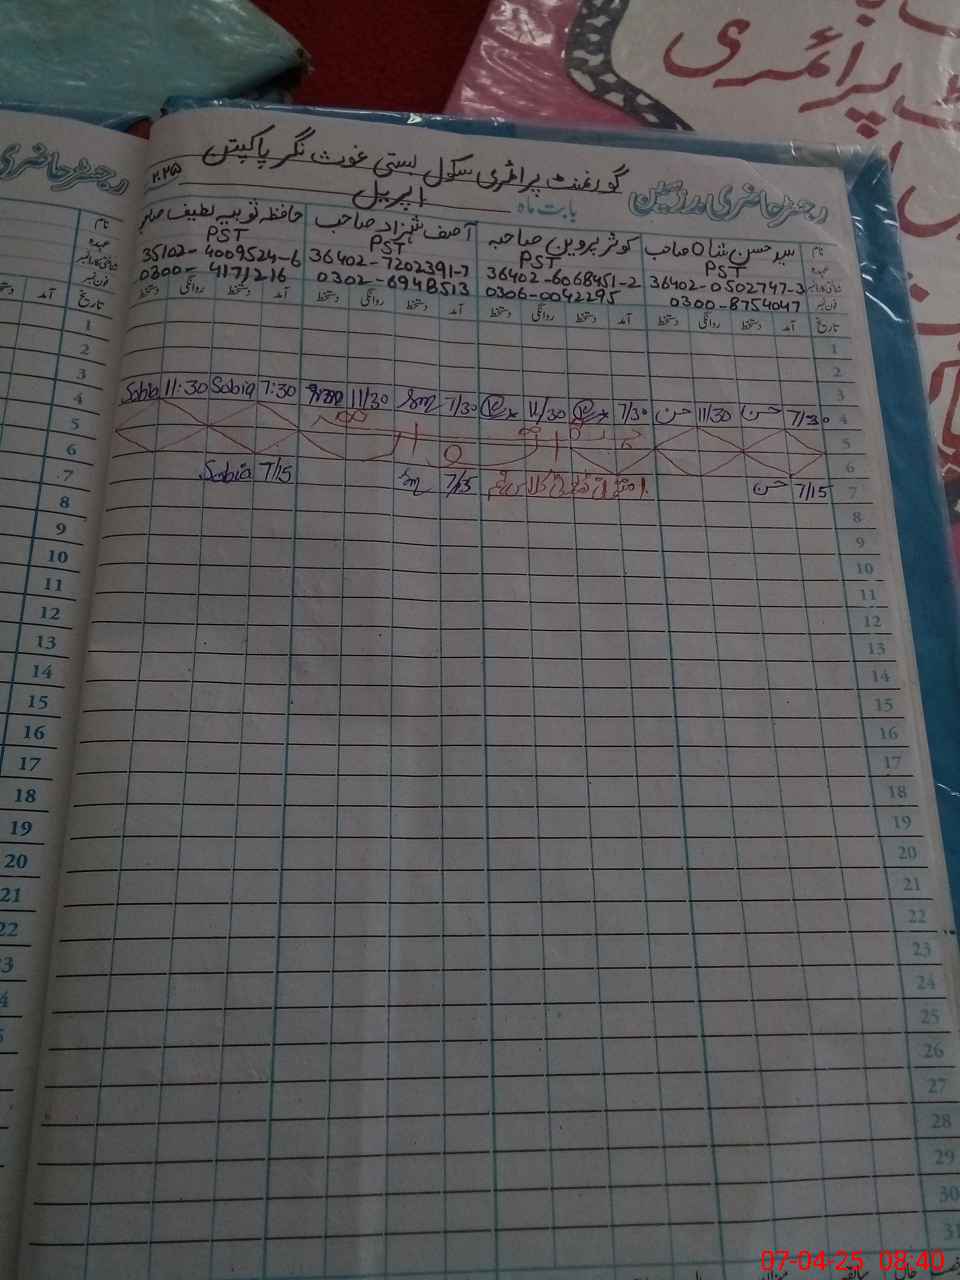 پرائمری
رجسٹر حاضری
گورنمنٹ پرائمری سکول بستی غوث نگر پاکپتن
رجسٹر حاضری مدرسین بابت ماہ اپریل ۲۰۲۵
نام سید حسن شاہ صاحب کوثر پروین صاحبہ آصف شہزاد صاحب حافظہ ثوبیہ لطیف صاحبہ
عہدہ PST PST PST PST
شناختی کارڈ نمبر 36402-0502747-3 36402-6068451-2 36402-7202391-7 35102-4009524-6
فون نمبر 0300-8754047 0306-0042295 0302-6948513 0300-4171216
تاریخ آمد دستخط روانگی دستخط آمد دستخط روانگی دستخط آمد دستخط روانگی دستخط آمد دستخط روانگی دستخط
1
2
3
4 7/30 حسن 11/30 حسن 7/30 11/30 7/30 11/30 7:30 Sobia 11:30 Sobia
5
6
7 7/15 حسن 7/15 7/15 Sobia
8
9
10
11
12
13
14
15
16
17
18
19
20
21
22
23
24
25
26
27
28
29
30
31
نام
عہدہ
شناختی کارڈ نمبر
فون نمبر
تاریخ آمد دستخط
1
2
3
4
5
6
7
8
9
10
11
12
13
14
15
16
17
18
19
20
21
22
23
07-04-25 08:40